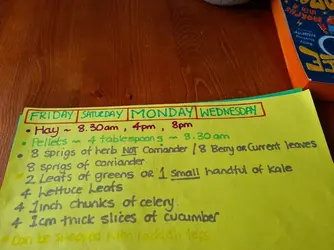 FRIDAY SATURDAY MONDAY WEDNESDAY
• Hay ~ 8.30am, 4pm, 8pm
• Pellets ~ 4 tablespoons ~ 8.30am
• 8 sprigs of herb NOT Corriander / 8 Berry or Current leaves
8 sprigs of corriander
• 2 Leafs of greens or 1 Small handful of Kale
• 4 Lettuce Leafs
• 4 1inch chunks of celery
• 4 1cm thick slices of cucumber
• Can be swapped with